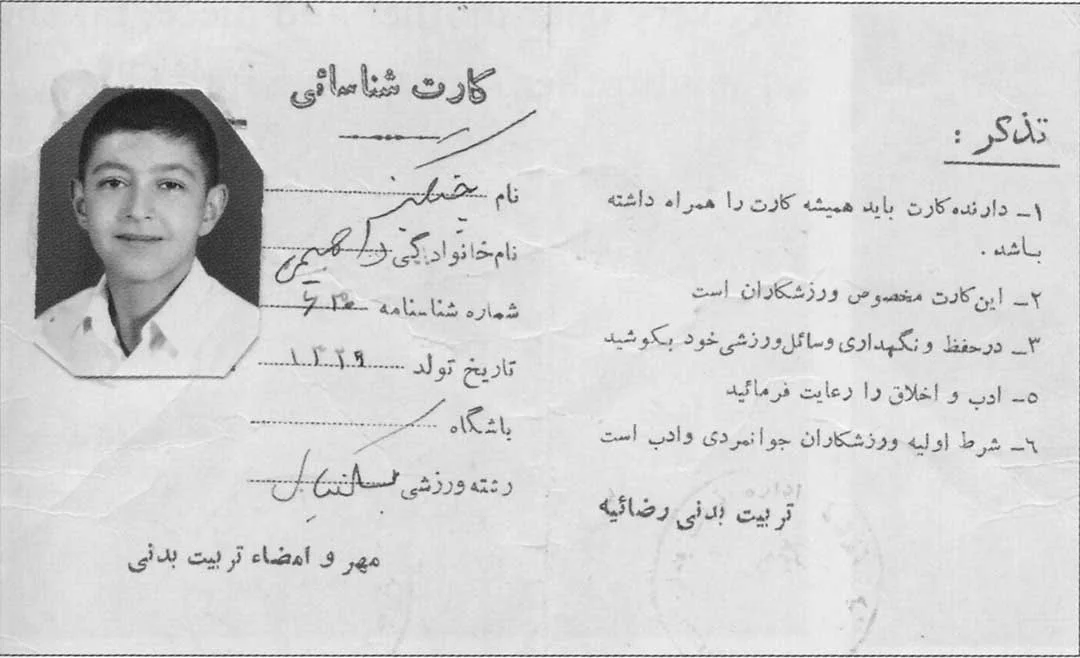 تذکر :
۱ـ دارنده کارت باید همیشه کارت را همراه داشته
باشد .
۲ـ این کارت مخصوص ورزشکاران است
۳ـ در حفظ و نگهداری وسائل ورزشی خود بکوشید
۵ـ ادب و اخلاق را رعایت فرمائید
۶ـ شرط اولیه ورزشکاران جوانمردی و ادب است
تربیت بدنی رضائیه
کارت شناسائی
نام
نام خانوادگی
شماره شناسنامه
تاریخ تولد ۱۳۲۹
باشگاه
رشته ورزشی بسکتبال
مهر و امضاء تربیت بدنی